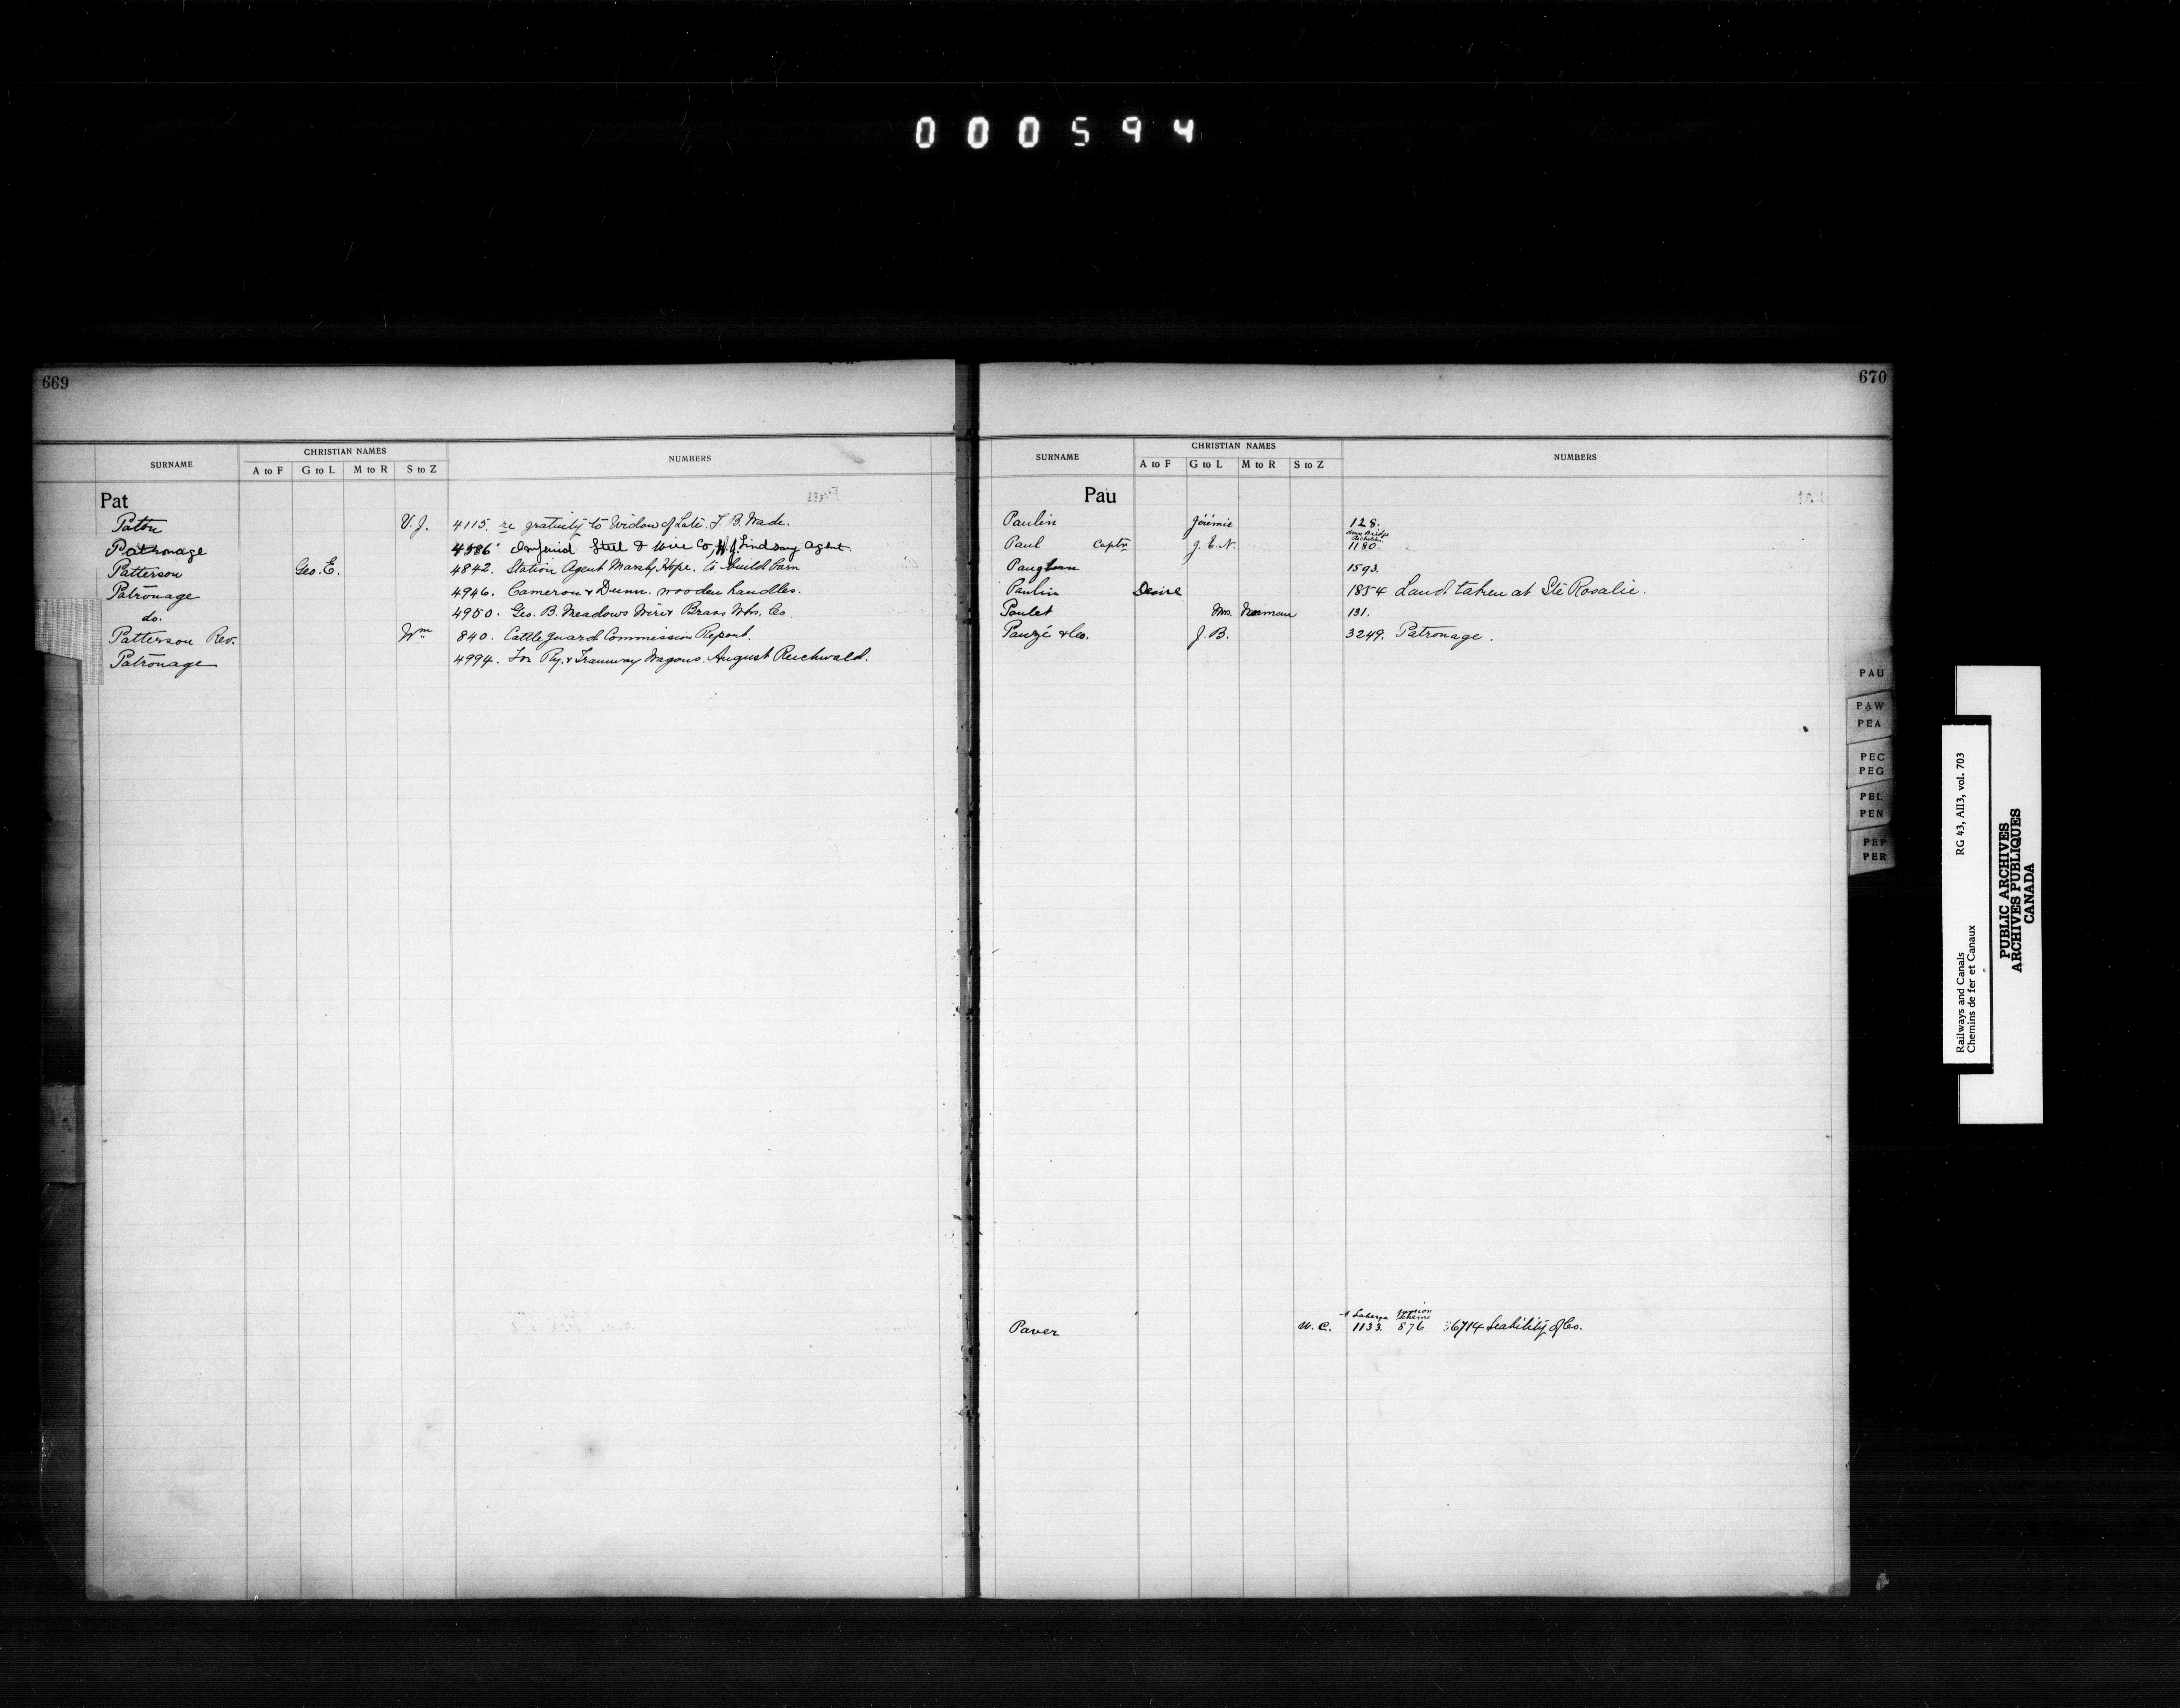 000594
669
SURNAME CHRISTIAN NAMES NUMBERS
A to F G to L M to R S to Z
Pat
Paton V. J. 4115. re gratuity to Widow of Late. F. B. Wade.
Patronage 4586 Imperial Steel & Wire Co, H. J. Lindsay Agent.
Patterson Geo. E. 4842. Station Agent Marshy Hope. to build barn
Patronage 4946. Cameron & Dunn. wooden handles.
do. 4950. Geo. B. Meadows Wire & Brass Wks. Co.
Patterson Rev. Wm 840. Cattle guard Commission Report.
Patronage 4994. For Ry. & Tramway Wagons. August Reichwald.
670
SURNAME CHRISTIAN NAMES NUMBERS
A to F G to L M to R S to Z
Pau
Paulin Jérémie 128.
Paul Captn J. E. N. 1180.
1593.
Paulin Desire 1854 Land taken at Ste Rosalie.
Poulet Mrs. Norman 131.
Pauzé & Co. J. B. 3249. Patronage.
Paver W. C. 1133. 876 6714 Leability of Co.
PAU
PAW
PEA
PEC
PEG
PEL
PEN
PEP
PER
Railways and Canals RG 43, AII3, vol. 703
Chemins de fer et Canaux
PUBLIC ARCHIVES
ARCHIVES PUBLIQUES
CANADA